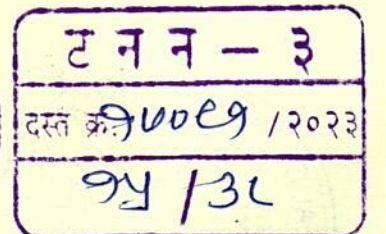 ट न न - ३
दस्त क्र. १७०९१ /२०२३
१५ / ३८